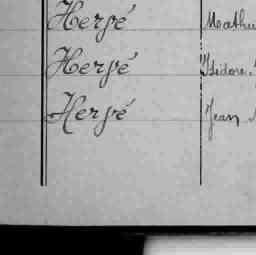 Hervé Mathu
Hervé Isidore
Hervé Jean